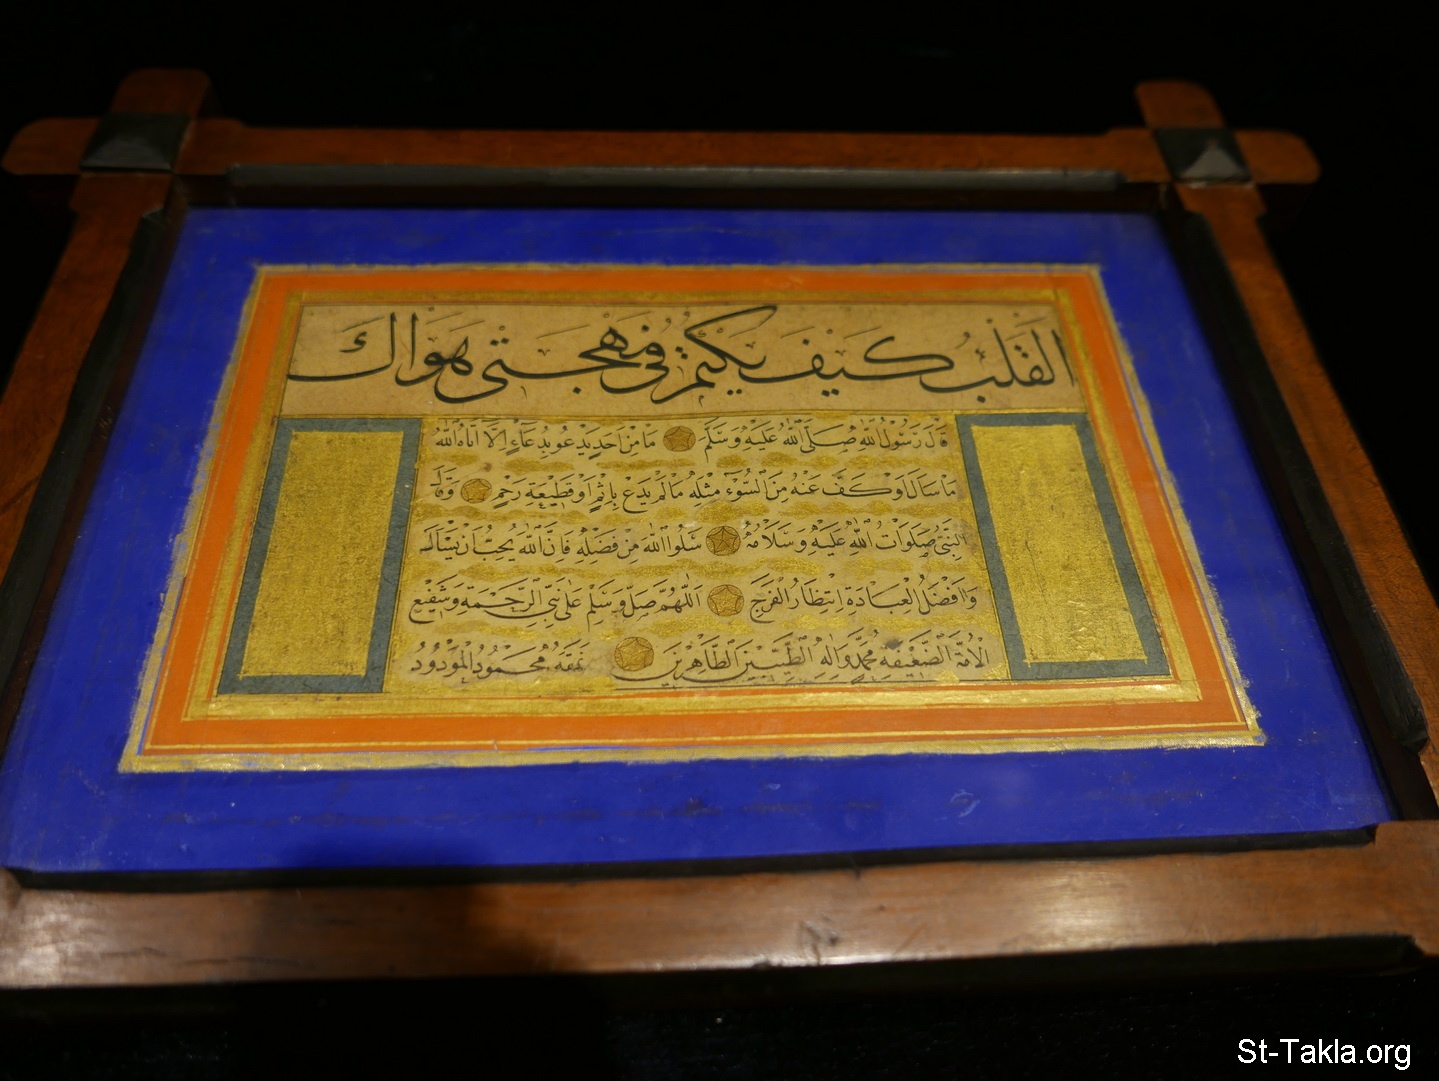 القلب كيف يكتم في مهجتي هواك
قَالَ رَسُولُ اللهِ صَلَّى اللهُ عَلَيْهِ وَسَلَّمَ مَا مِنْ اَحَدٍ يَدْعُو بِدُعَاءٍ اِلَّا اٰتَاهُ اللهُ
مَا سَاَلَ اَوْ كَفَّ عَنْهُ مِنَ السُّوۤءِ مِثْلَهُ مَا لَمْ يَدْعُ بِاِثْمٍ اَوْ قَطِيعَةِ رَحِمٍ وَقَالَ
النَّبِيُّ صَلَوَاتُ اللهِ عَلَيْهِ وَسَلَامُهُ سَلُوا اللهَ مِنْ فَضْلِهِ فَاِنَّ اللهَ يُحِبُّ اَنْ يُسْاَلَ
وَاَفْضَلُ الْعِبَادَةِ اِنْتِظَارُ الْفَرَجِ اَللّٰهُمَّ صَلِّ وَسَلِّمْ عَلٰى نَبِيِّ الرَّحْمَةِ وَشَفِيعِ
الْاُمَّةِ الضَّعِيفَةِ مُحَمَّدٍ وَاٰلِهِ الطَّيِّبِينَ الطَّاهِرِينَ نَمَقَهُ مَحْمُودُ الْمَوْدُودُ
St-Takla.org